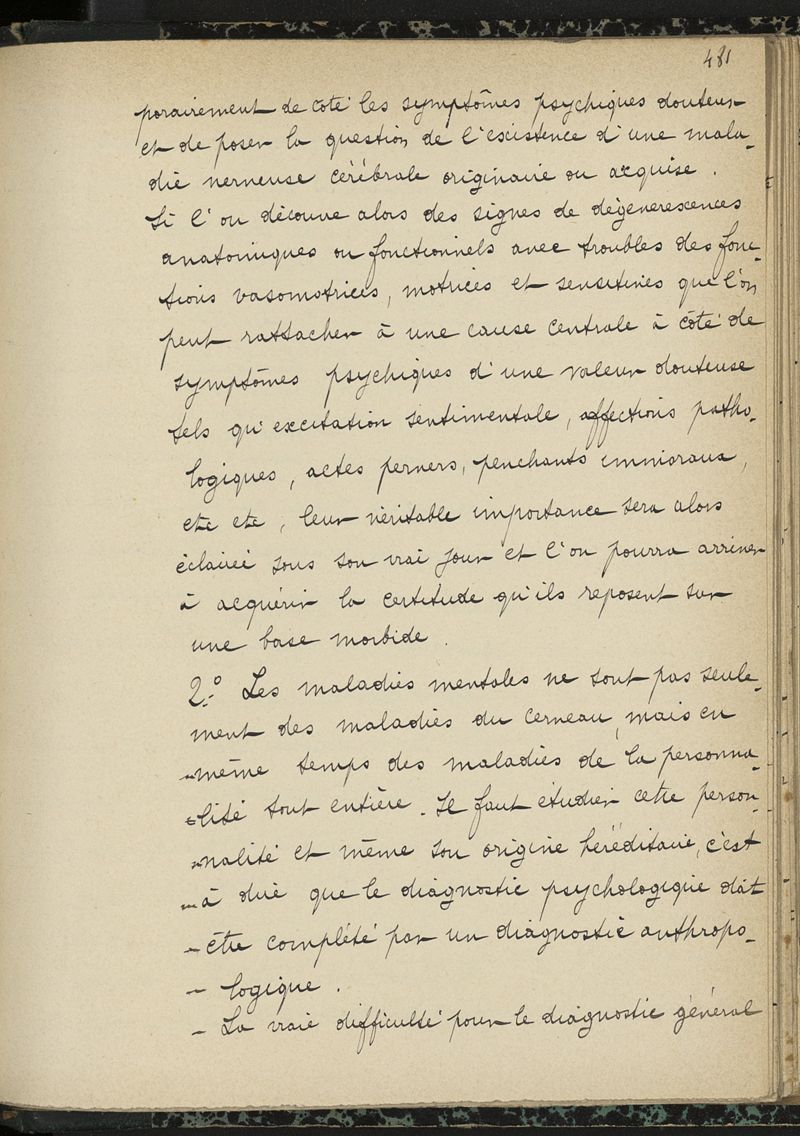 481
porairement de coté les symptômes psychiques douteux
et de poser la question de l'existence d'une mala-
die nerveuse cérébrale originaire ou acquise.
Si l'on découvre alors des signes de dégénerescences
anatomiques ou fonctionnels avec troubles des fonc-
tions vasomotrices, motrices et sensitives que l'on
peut rattacher à une cause centrale à côté de
symptômes psychiques d'une valeur douteuse
tels qu'excitation sentimentale, affections patho-
logiques, actes pervers, penchants immoraux,
etc etc, leur véritable importance sera alors
éclairée sous son vrai jour et l'on pourra arriver
à acquérir la certitude qu'ils reposent sur
une base morbide.
2.° Les maladies mentales ne sont pas seule-
ment des maladies du cerveau, mais en
-même temps des maladies de la personna-
-lité tout entière. Il faut étudier cette person-
-nalité et même son origine héréditaire, c'est
-à dire que le diagnostic psychologique doit
- être complété par un diagnostic anthropo-
- logique.
- La vraie difficulté pour le diagnostic général